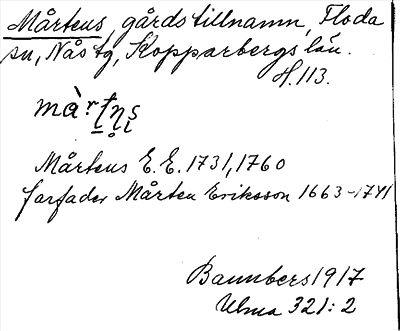 Mårtens, gårdstillnamn, Floda
sn, Nås tg, Kopparbergs län.
H. 113.
Mårtens E. E. 1731, 1760
farfader Mårten Eriksson 1663-1741
Bannbers 1917
Ulma 321:2